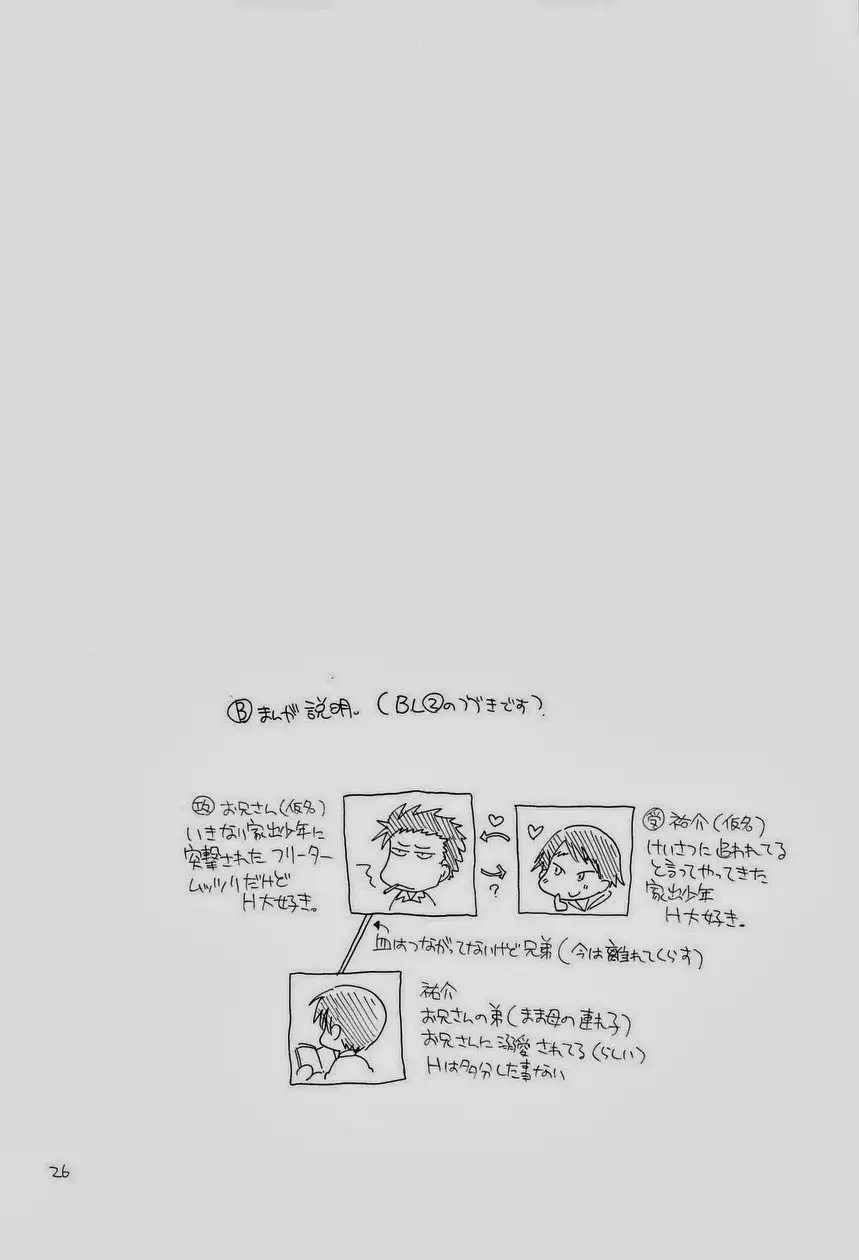 Ⓑ まんが説明。(BL②のつづきです)
攻 お兄さん(仮名)
いきなり家出少年に
突撃されたフリーター
ムッツリだけど
H大好き。
?
受 祐介(仮名)
けいさつに追われてる
と言ってやってきた
家出少年
H大好き。
血はつながってないけど兄弟(今は離れてくらす)
祐介
お兄さんの弟(まま母の連れ子)
お兄さんに溺愛されてる(らしい)
Hは多分した事ない
26